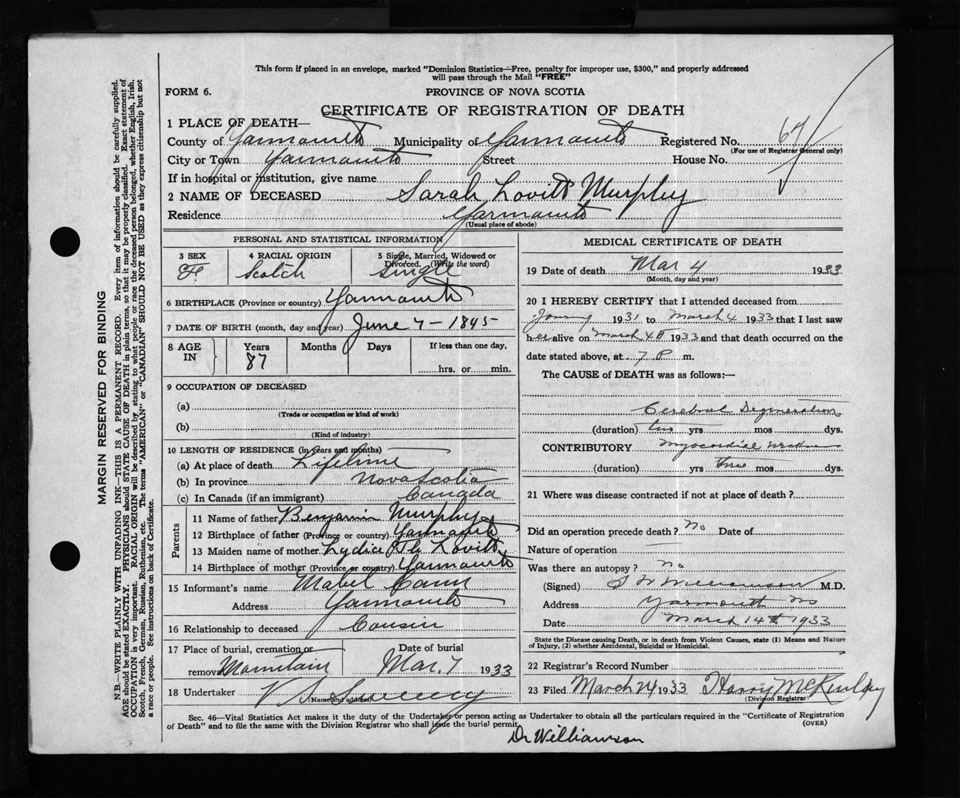 This form if placed in an envelope, marked "Dominion Statistics—Free, penalty for improper use, $300," and properly addressed
will pass through the Mail "FREE"
FORM 6.
PROVINCE OF NOVA SCOTIA
CERTIFICATE OF REGISTRATION OF DEATH
1 PLACE OF DEATH—
County of Yarmouth Municipality of Yarmouth Registered No. 67
(For use of Registrar General only)
City or Town Yarmouth Street House No.
If in hospital or institution, give name
2 NAME OF DECEASED Sarah Lovitt Murphy
Residence Yarmouth
(Usual place of abode)
PERSONAL AND STATISTICAL INFORMATION
3 SEX 4 RACIAL ORIGIN 5 Single, Married, Widowed or
Divorced. (Write the word)
F. Scotch Single
6 BIRTHPLACE (Province or country) Yarmouth
7 DATE OF BIRTH (month, day and year) June 7 - 1845
8 AGE IN Years Months Days If less than one day,
87 hrs. or min.
9 OCCUPATION OF DECEASED
(a)
(Trade or occupation or kind of work)
(b)
(Kind of industry)
10 LENGTH OF RESIDENCE (in years and months)
(a) At place of death Lifetime
(b) In province Nova Scotia
(c) In Canada (if an immigrant) Canada
Parents
11 Name of father Benjamin Murphy
12 Birthplace of father (Province or country) Yarmouth
13 Maiden name of mother Lydia Lovitt
14 Birthplace of mother (Province or country) Yarmouth
15 Informant's name Mabel Cann
Address Yarmouth
16 Relationship to deceased Cousin
17 Place of burial, cremation or Date of burial
removal Mountain Mar. 7 1933
18 Undertaker V S Sweeny
(Name and address)
MEDICAL CERTIFICATE OF DEATH
19 Date of death Mar 4 1933
(Month, day and year)
20 I HEREBY CERTIFY that I attended deceased from
1931 to March 4 1933 that I last saw
her alive on March 4th 1933 and that death occurred on the
date stated above, at 7 P m.
The CAUSE of DEATH was as follows:—
Cerebral Degeneration
(duration) two yrs mos dys.
CONTRIBUTORY
(duration) yrs mos dys.
21 Where was disease contracted if not at place of death?
Did an operation precede death? No Date of
Nature of operation
Was there an autopsy? No
(Signed) Williamson M.D.
Address Yarmouth NS
Date March 14th 1933
State the Disease causing Death, or in death from Violent Causes, state (1) Means and Nature
of Injury, (2) whether Accidental, Suicidal or Homicidal.
22 Registrar's Record Number
23 Filed March 24 1933 Harry McKinley
(Division Registrar)
Sec. 46—Vital Statistics Act makes it the duty of the Undertaker or person acting as Undertaker to obtain all the particulars required in the "Certificate of Registration
of Death" and to file the same with the Division Registrar who shall issue the burial permit. (OVER)
Dr Williamson
MARGIN RESERVED FOR BINDING
N.B.—WRITE PLAINLY WITH UNFADING INK—THIS IS A PERMANENT RECORD. Every item of information should be carefully supplied.
AGE should be stated EXACTLY. PHYSICIANS should STATE CAUSE OF DEATH in plain terms, so that it may be properly classified. Exact statement of
OCCUPATION is very important. RACIAL ORIGIN will be described by stating to what people or race the deceased person belonged, whether English, Irish,
Scotch, French, German, Russian, Ruthenian, etc. The terms "AMERICAN" or "CANADIAN" SHOULD NOT BE USED as they express citizenship but not
a race or people. See instructions on back of Certificate.